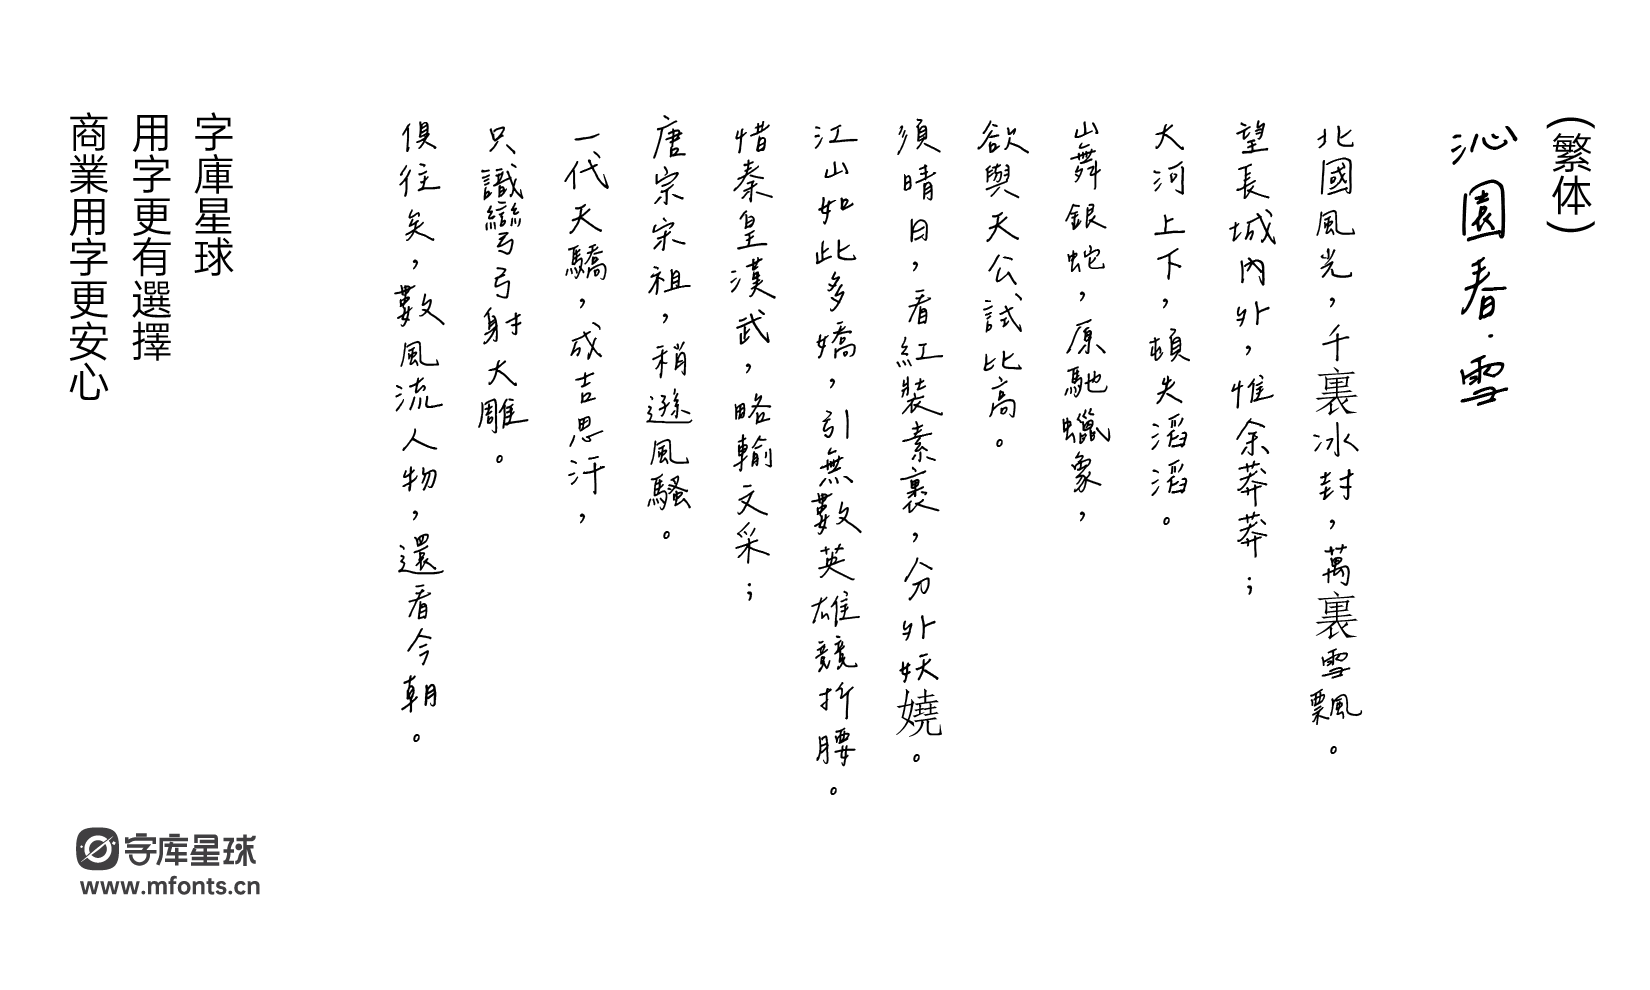 （繁体）
沁園春·雪
北國風光，千裏冰封，萬裏雪飄。
望長城內外，惟余莽莽；
大河上下，頓失滔滔。
山舞銀蛇，原馳蠟象，
欲與天公試比高。
須晴日，看紅裝素裹，分外妖嬈。
江山如此多嬌，引無數英雄競折腰。
惜秦皇漢武，略輸文采；
唐宗宋祖，稍遜風騷。
一代天驕，成吉思汗，
只識彎弓射大雕。
俱往矣，數風流人物，還看今朝。
字庫星球
用字更有選擇
商業用字更安心
字库星球
www.mfonts.cn